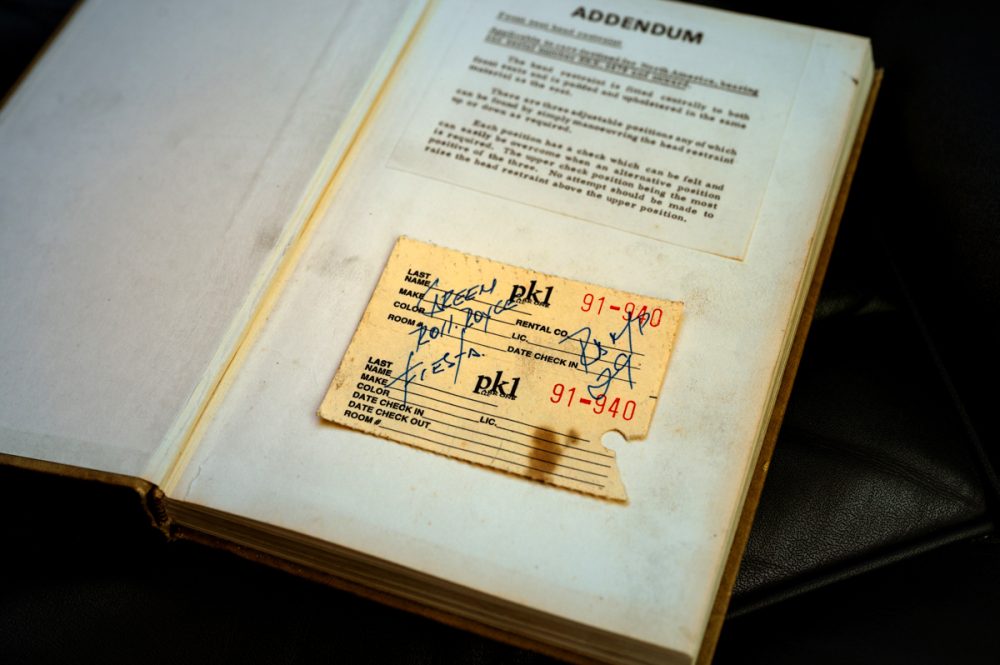 ADDENDUM
Front seat head restraint
Applicable to cars destined for North America, bearing
The head restraint is fitted centrally to both
front seats and is padded and upholstered in the same
material as the seat.
There are three adjustable positions any of which
can be found by simply manoeuvring the head restraint
up or down as required.
Each position has a check which can be felt and
can easily be overcome when an alternative position
is required. The upper check position being the most
positive of the three. No attempt should be made to
raise the head restraint above the upper position.
LAST
NAME GREEN pk1 91-940
MAKE ROLL ROYCE RENTAL CO.
COLOR LIC.
ROOM # DATE CHECK IN
FIESTA.
LAST
NAME pk1 91-940
MAKE
COLOR LIC.
DATE CHECK IN
DATE CHECK OUT
ROOM #